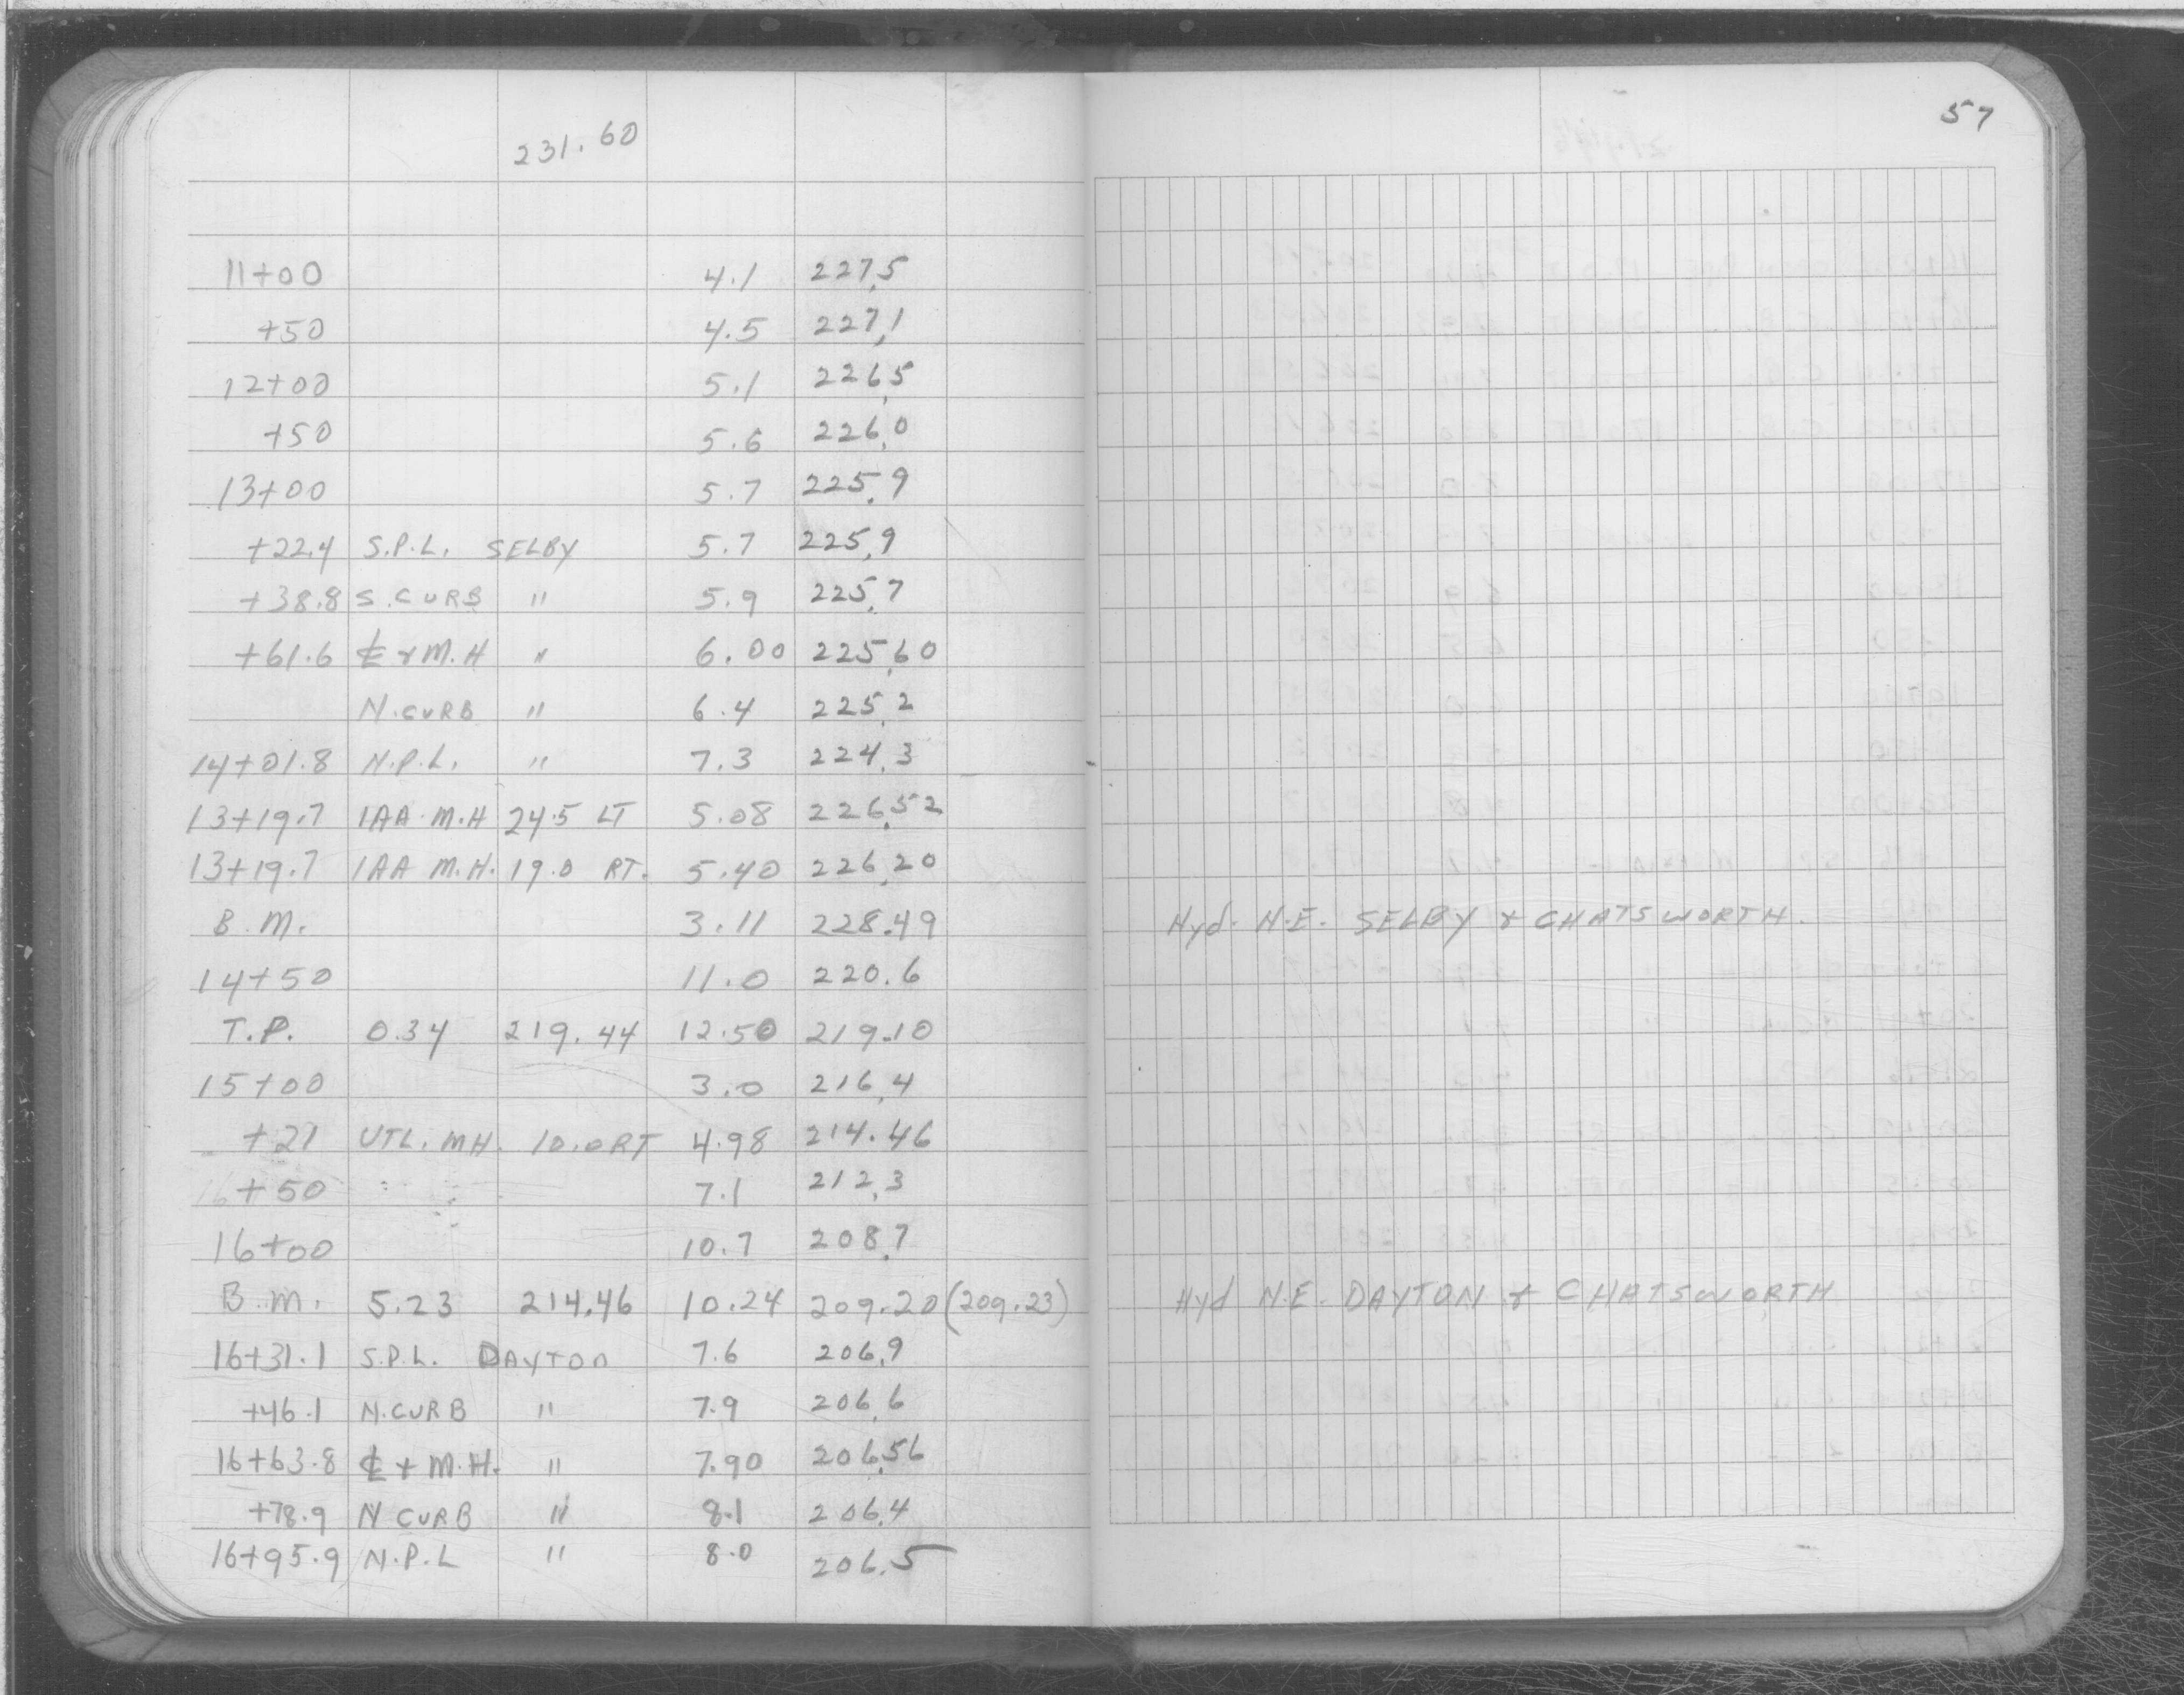 57
231.60
11+00 4.1 227.5
+50 4.5 227.1
12+00 5.1 226.5
+50 5.6 226.0
13+00 5.7 225.9
+22.4 S.P.L. SELBY 5.7 225.9
+38.8 S.CURB " 5.9 225.7
+61.6 ℄ & M.H " 6.00 225.60
N.CURB " 6.4 225.2
14+01.8 N.P.L. " 7.3 224.3
13+19.7 1AA M.H 24.5 LT 5.08 226.52
13+19.7 1AA M.H. 19.0 RT. 5.40 226.20
B.M. 3.11 228.49 Hyd. N.E. SELBY & CHATSWORTH.
14+50 11.0 220.6
T.P. 0.34 219.44 12.50 219.10
15+00 3.0 216.4
+21 UTL. MH. 10.0RT 4.98 214.46
+50 7.1 212.3
16+00 10.7 208.7
B.M. 5.23 214.46 10.24 209.20 (209.23) Hyd N.E. DAYTON & CHATSWORTH
16+31.1 S.P.L. DAYTON 7.6 206.9
+46.1 N.CURB " 7.9 206.6
16+63.8 ℄ & M.H. " 7.90 206.56
+78.9 N CURB " 8.1 206.4
16+95.9 N.P.L " 8.0 206.5